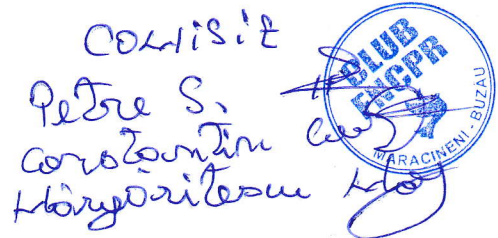 COMISIE
Petre S.
Constantin
Mărgăritescu
CLUB
FRCPR
MARACINENI - BUZAU